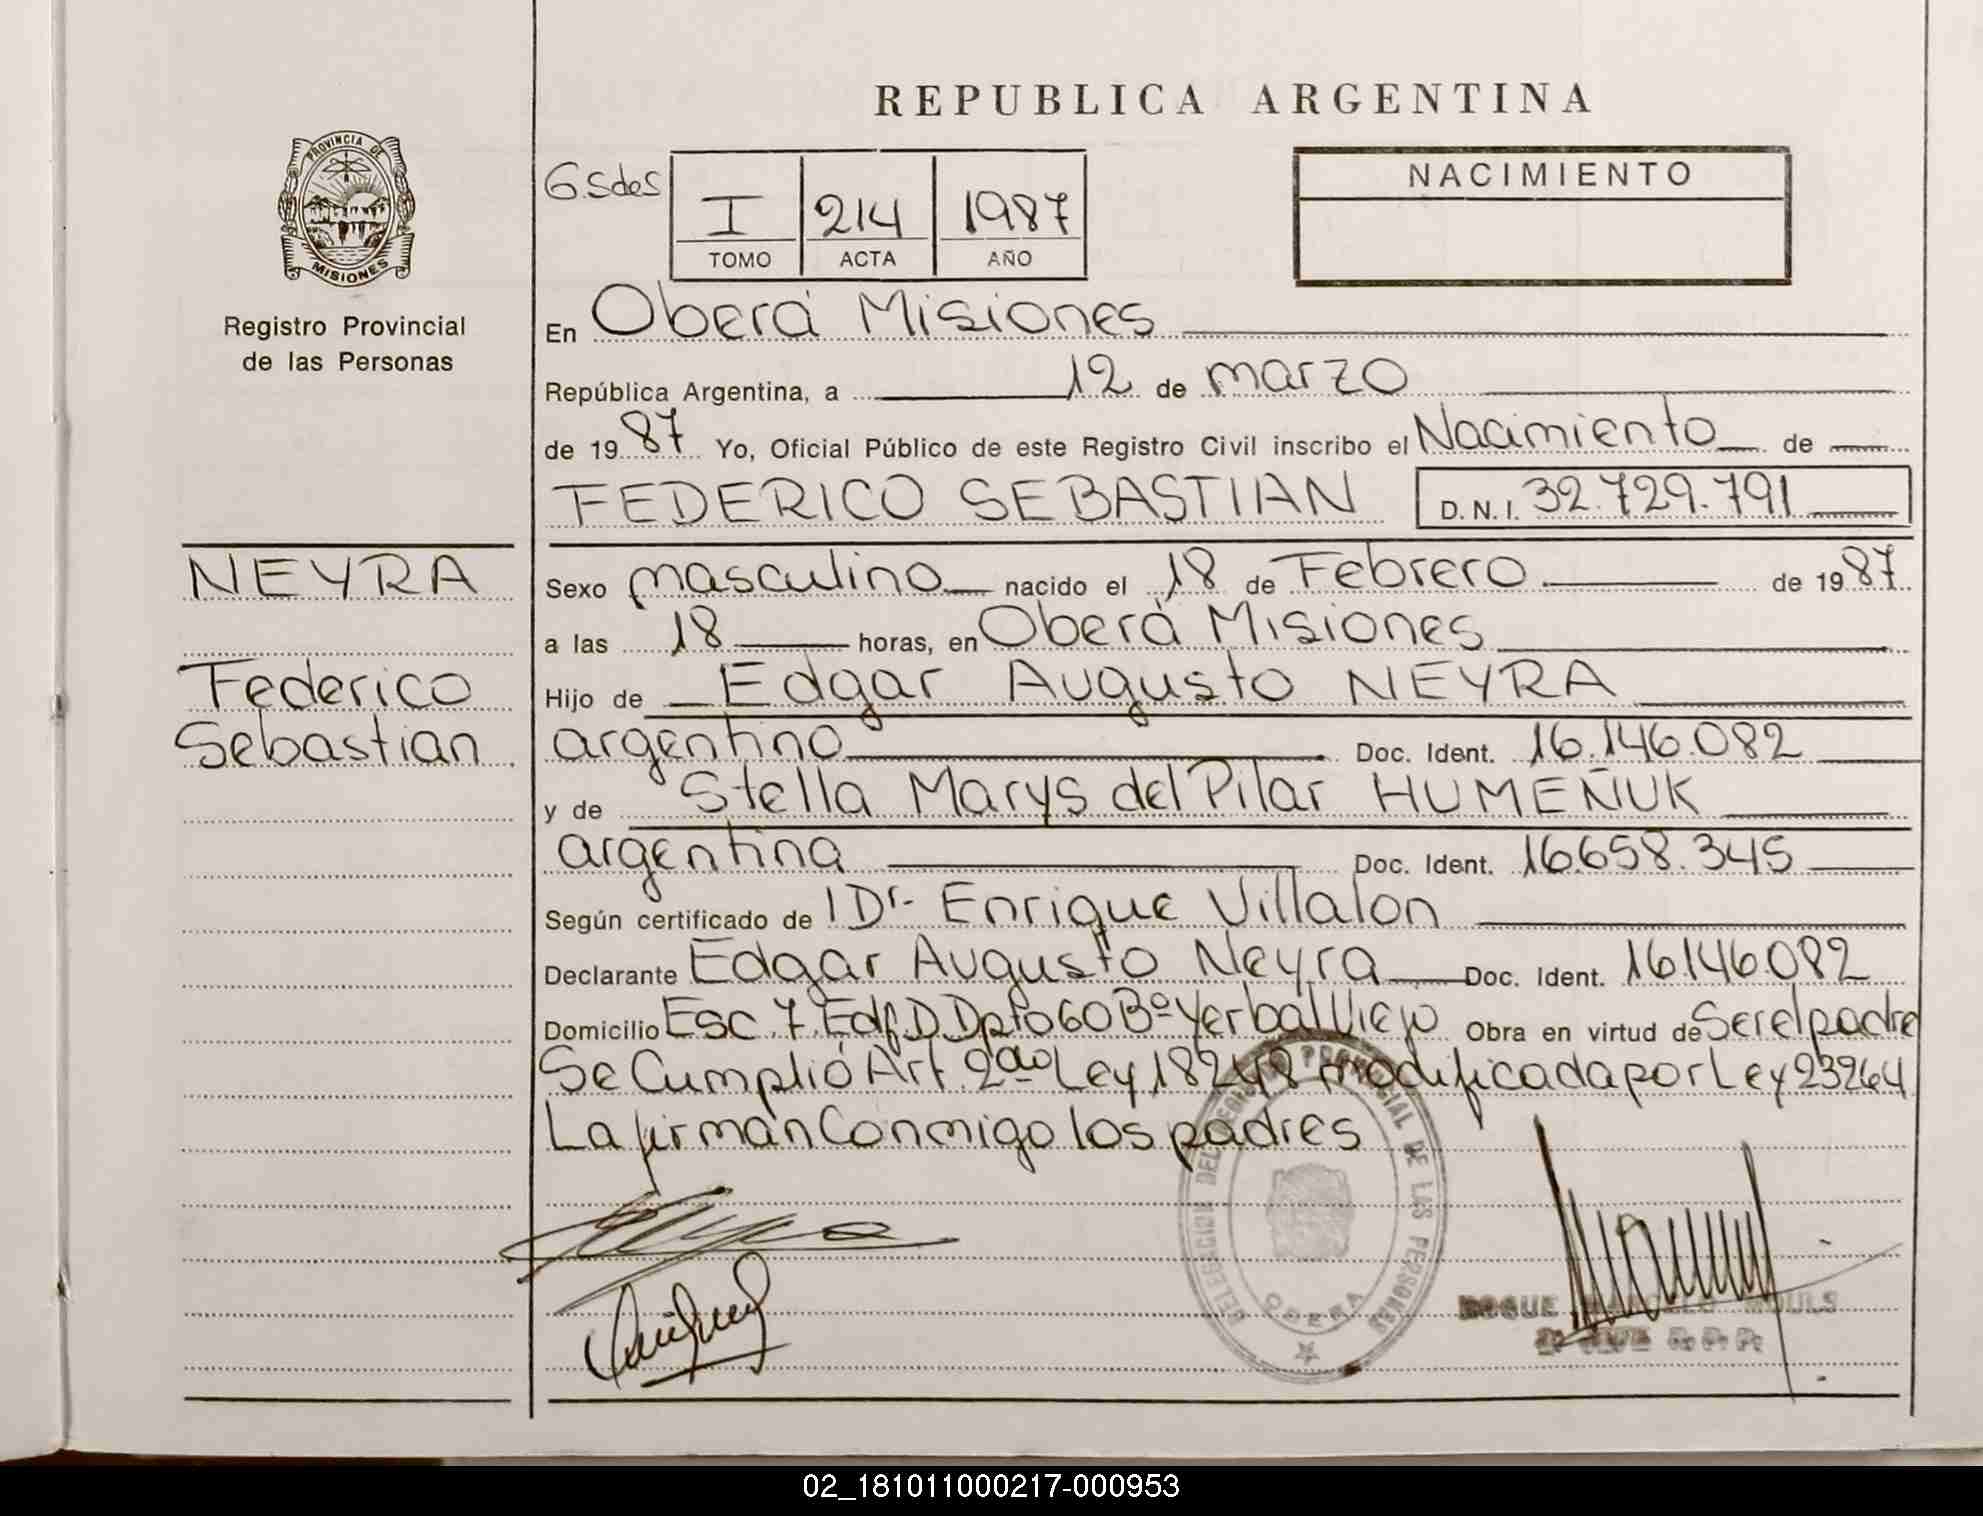 REPUBLICA ARGENTINA
PROVINCIA DE
MISIONES
Registro Provincial
de las Personas
G.Sdes
I 214 1987
TOMO ACTA AÑO
NACIMIENTO
En Oberá Misiones
República Argentina, a 12 de marzo
de 1987 Yo, Oficial Público de este Registro Civil inscribo el Nacimiento de
FEDERICO SEBASTIAN D.N.I. 32.729.791
NEYRA
Federico
Sebastian
Sexo masculino nacido el 18 de Febrero de 1987
a las 18 horas, en Oberá Misiones
Hijo de Edgar Augusto NEYRA
argentino Doc. Ident. 16.146.082
y de Stella Marys del Pilar HUMEÑUK
argentina Doc. Ident. 16.658.345
Según certificado de 1 Dr. Enrique Villalon
Declarante Edgar Augusto Neyra Doc. Ident. 16.146.082
Domicilio Esc 7 Edf. D Dpto 60 Bº Yerbal Viejo Obra en virtud de Ser el padre
Se Cumplió Art. 2do Ley 18248 modificada por Ley 23264
La firman Conmigo los padres
DELEGACION DEL REGISTRO PROVINCIAL DE LAS PERSONAS
OBERA
ROQUE
R. P. P.
02_181011000217-000953